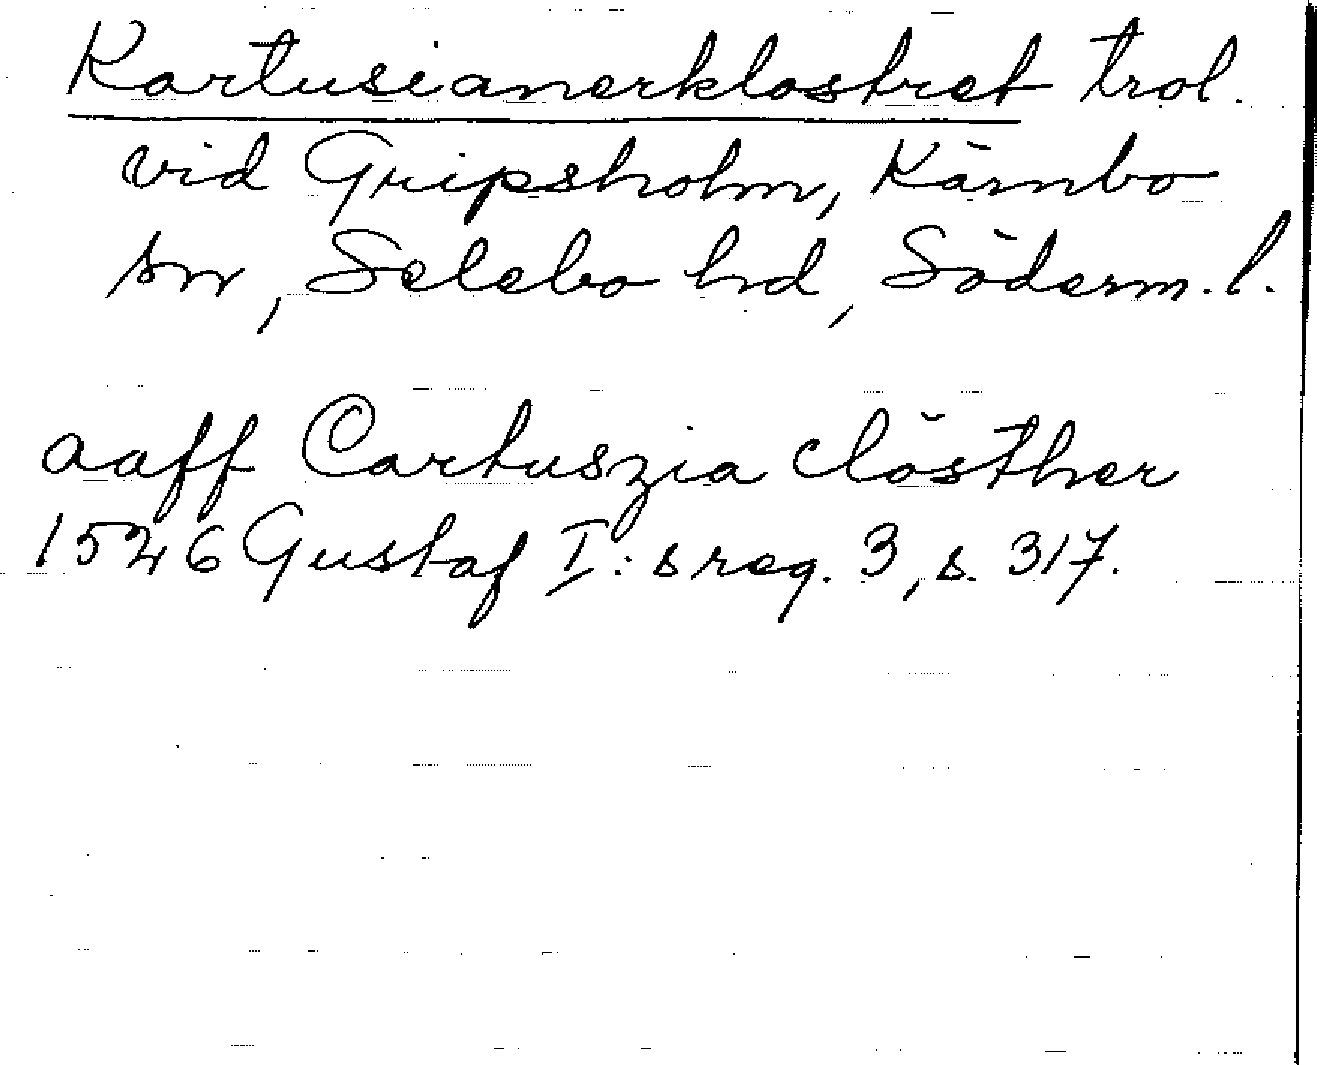 Kartusianerklostret trol.
vid Gripsholm, Kärnbo
sn, Selebo hd, Söderm. l.
aaff Cartuszia clösther
1526 Gustaf I:s reg. 3, s. 317.